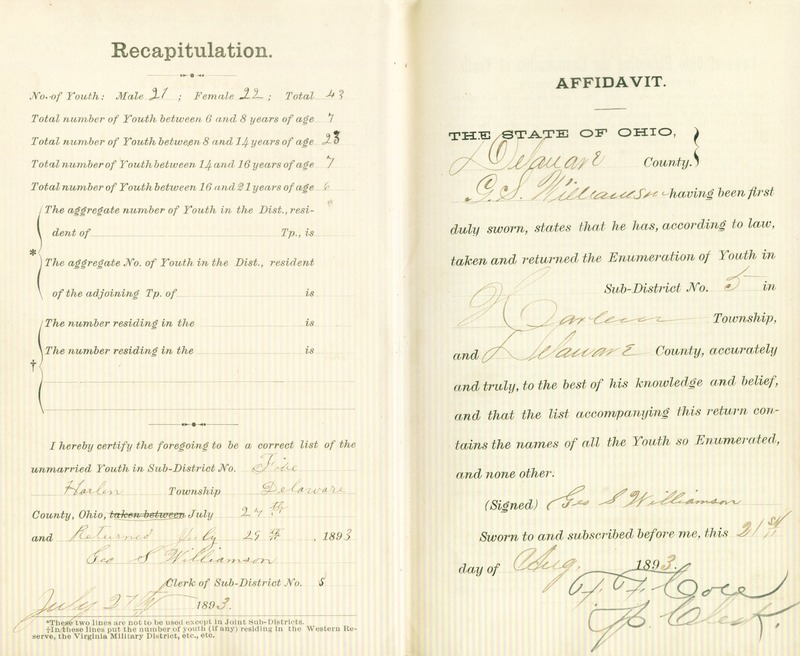 Recapitulation.
No. of Youth: Male 21; Female 22; Total 43
Total number of Youth between 6 and 8 years of age 7
Total number of Youth between 8 and 14 years of age 23
Total number of Youth between 14 and 16 years of age 7
Total number of Youth between 16 and 21 years of age 6
The aggregate number of Youth in the Dist., resi-
dent of Tp., is
*
The aggregate No. of Youth in the Dist., resident
of the adjoining Tp. of is
The number residing in the is
The number residing in the is
†
I hereby certify the foregoing to be a correct list of the
unmarried Youth in Sub-District No. Five
Harlen Township Delaware
County, Ohio, taken between July 27th
and Returned July 29th, 1893
Geo S Williamson
Clerk of Sub-District No. 5
July 27th 1893.
*These two lines are not to be used except in Joint Sub-Districts.
†In these lines put the number of youth (if any) residing in the Western Re-
serve, the Virginia Military District, etc., etc.
AFFIDAVIT.
THE STATE OF OHIO,
Delaware County.
G. S. Williamson having been first
duly sworn, states that he has, according to law,
taken and returned the Enumeration of Youth in
Sub-District No. 5 in
Harlem Township,
and Delaware County, accurately
and truly, to the best of his knowledge and belief,
and that the list accompanying this return con-
tains the names of all the Youth so Enumerated,
and none other.
(Signed) Geo S Williamson
Sworn to and subscribed before me, this 21st
day of Aug. 1893.
F. F. Core
Clerk.